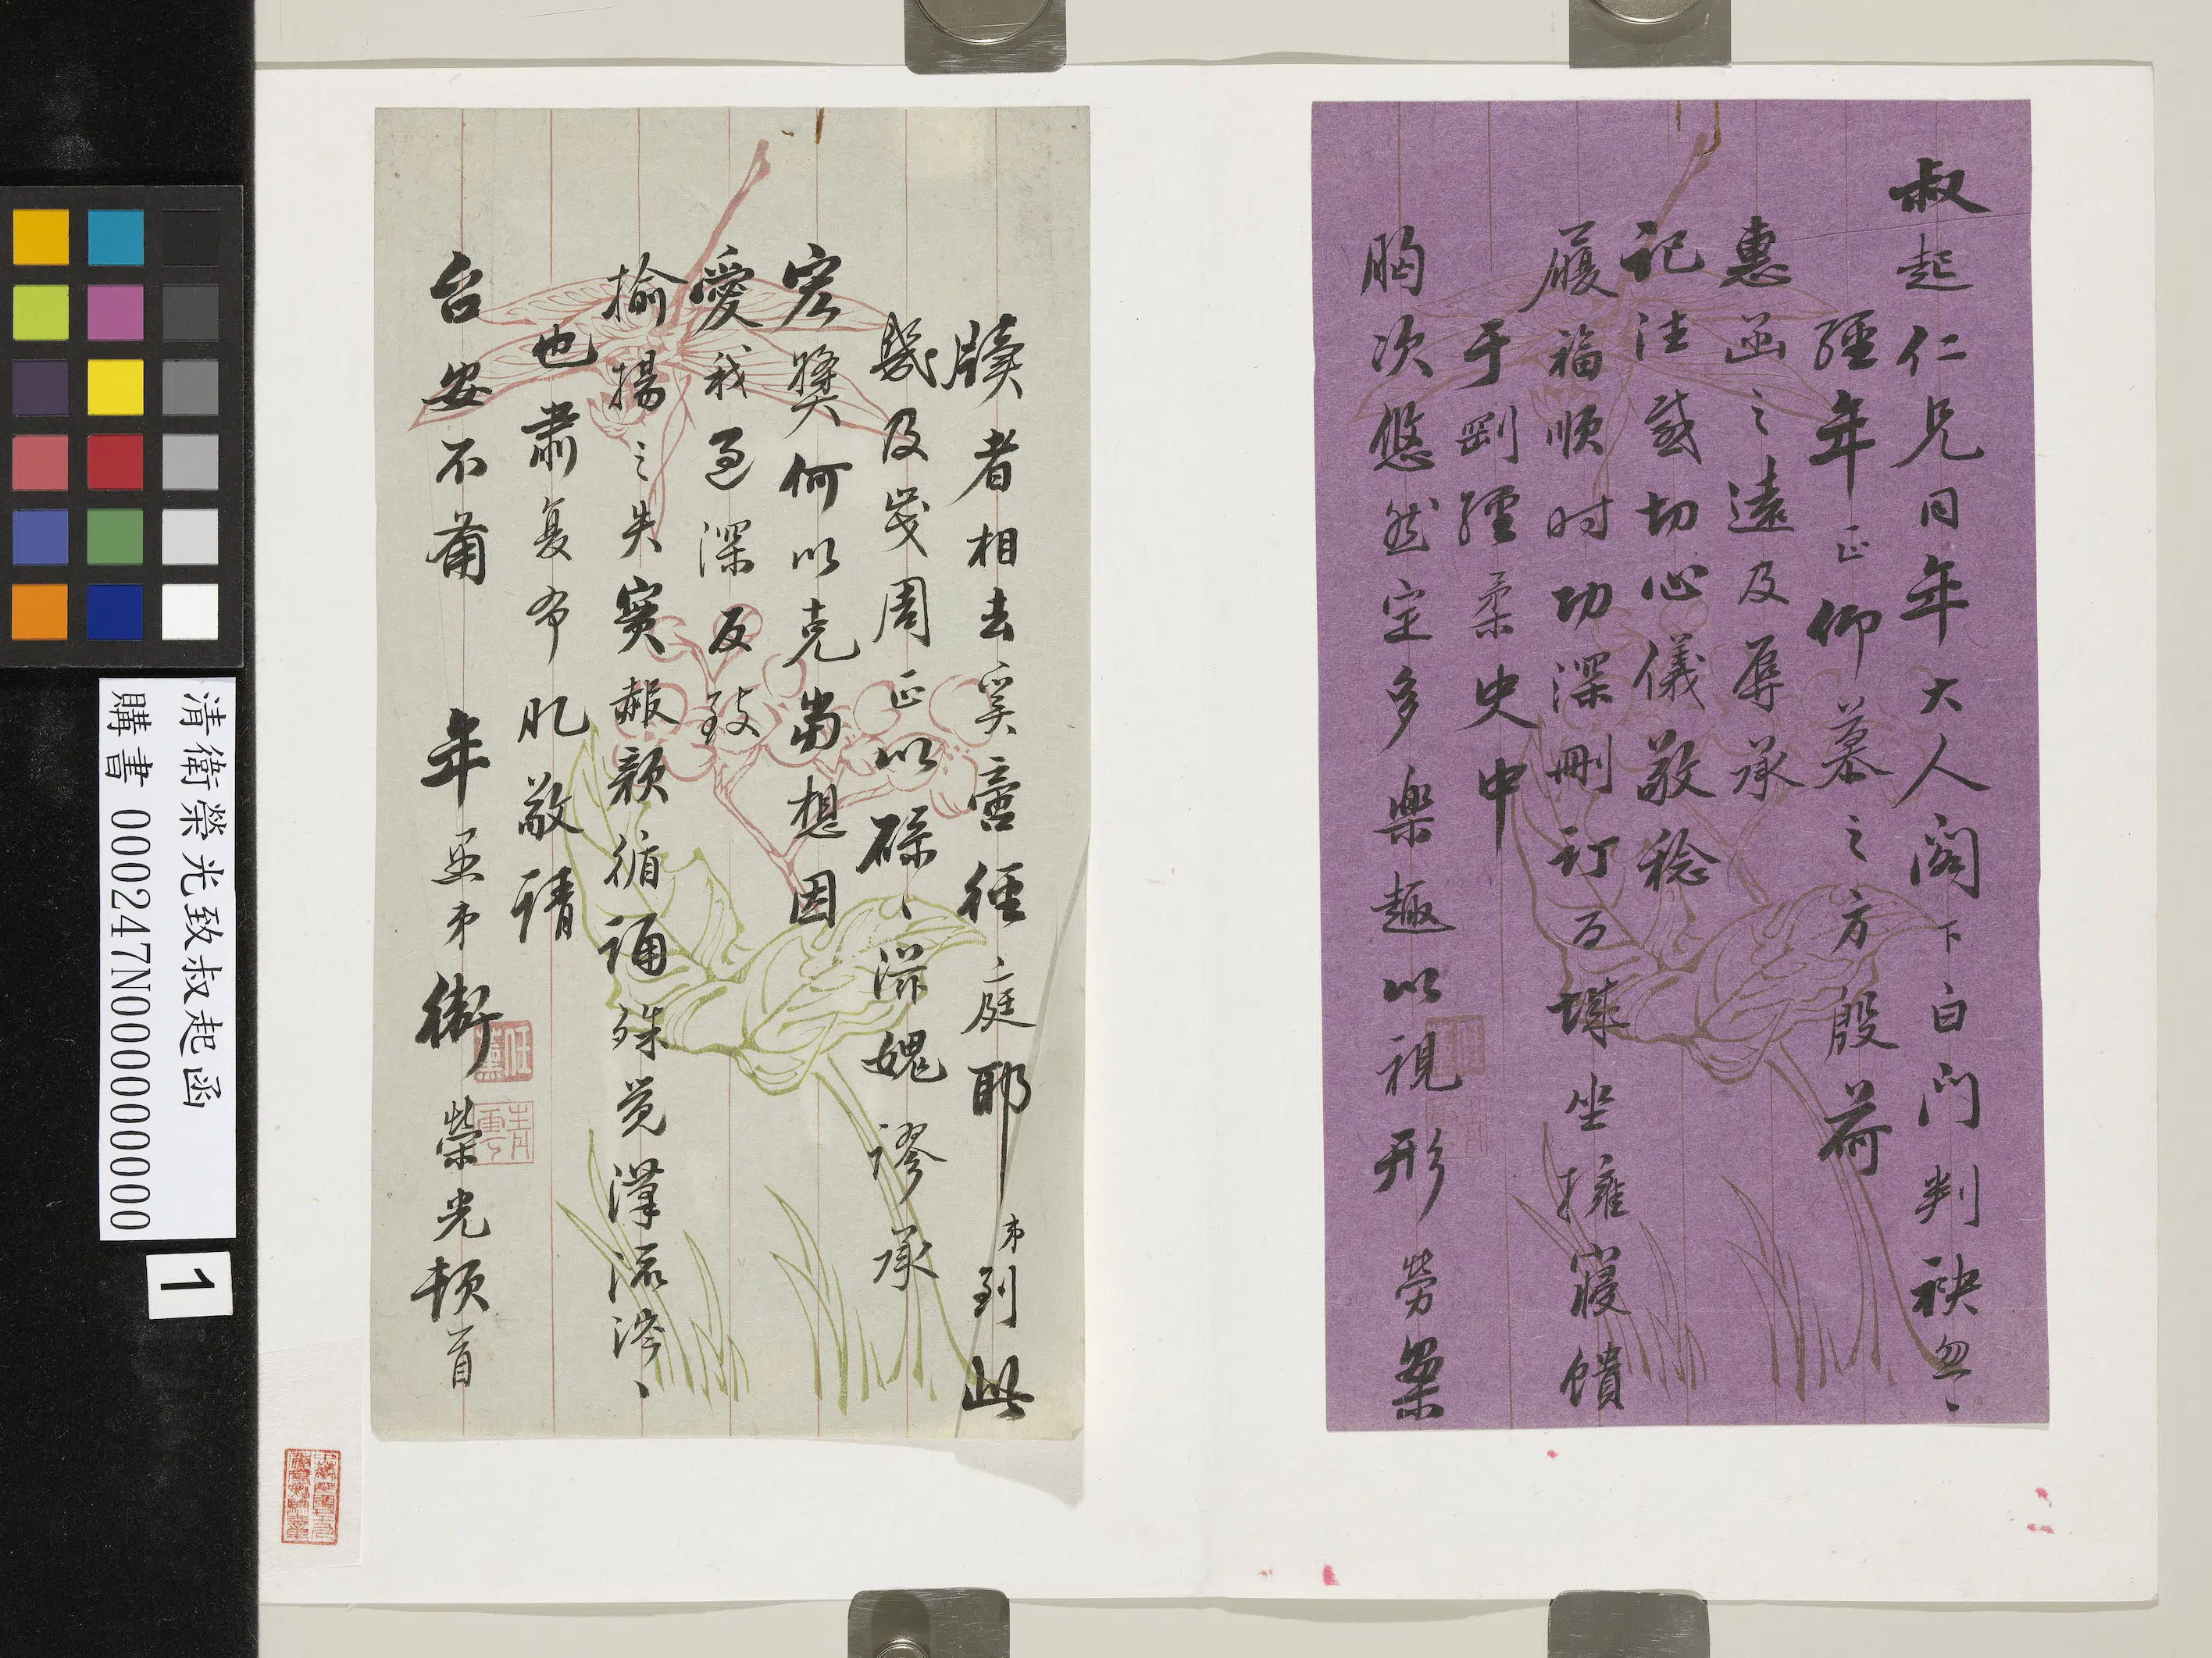 叔起仁兄同年大人閣下白门判袂忽、
經年正仰慕之方殷荷
惠函之遠及辱承
记注感切心儀敬稔
履福順时功深刪订百城坐擁寢饋
于剛經柔史中
胸次悠然定多樂趣以視形勞案
牘者相去奚啻徑庭耶弟到此
幾及歲周正以碌、滋媿謬承
宏獎何以克當想因
愛我過深反致
揄揚之失實赧顏循诵殊覚漢流浹、
也肅复布肊敬請
台安不莆 年愚弟衛榮光頓首
任薰
青雲
清衛榮光致叔起函
購書 000247N000000000
1